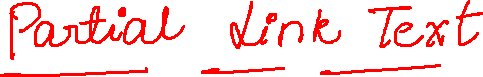 Partial Link Text